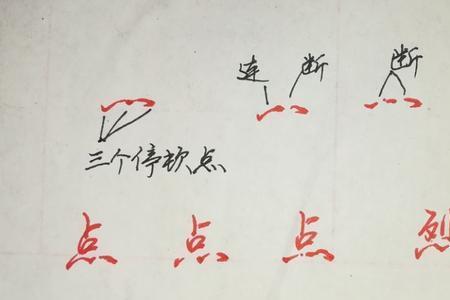 连 断 断
三个停顿点
点 点 点 烈